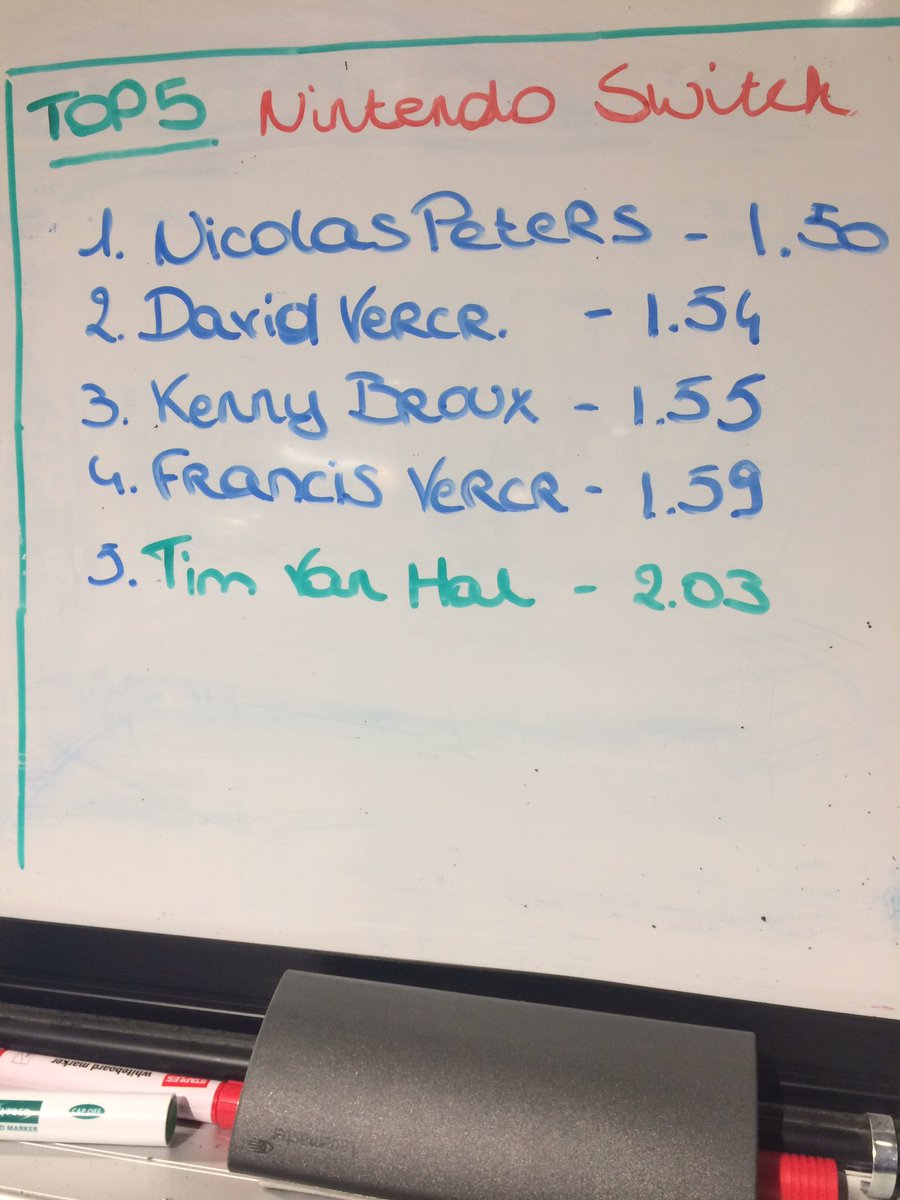 TOP 5 Nintendo Switch
1. Nicolas Peters - 1.50
2. David Vercr. - 1.54
3. Kenny Broux - 1.55
4. Francis Vercr - 1.59
5. Tim Van Hal - 2.03
whiteboard marker STAPLES
CAP OFF
D MARKER